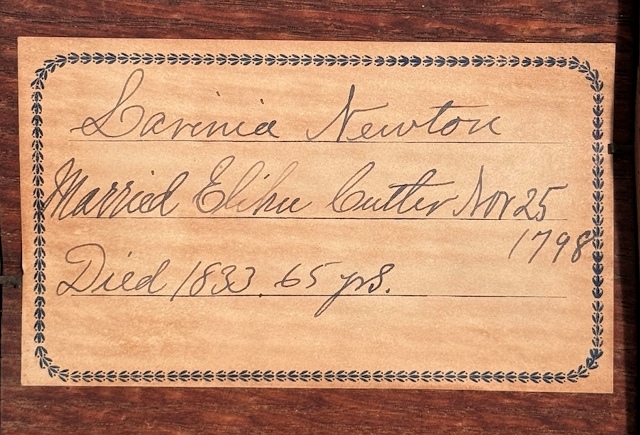 Lavinia Newton
Married Elihu Cutter Nov 25
1798
Died 1833. 65 yrs.